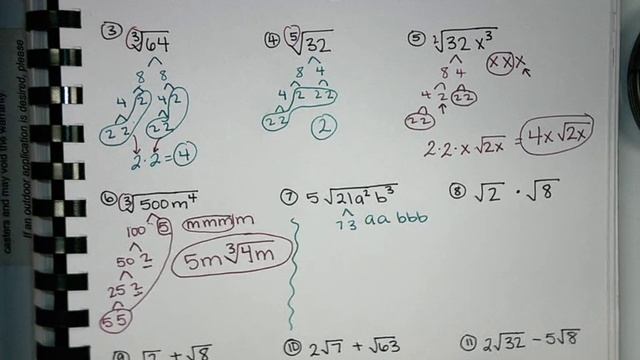 casters and may void the warranty.
If an outdoor application is desired, please
③ ∛64
8 8
4 2 4 2
2 2 2 2
2·2=4
④ ⁵√32
8 4
4 2 2 2
2 2
2
⑤ ²√32x³
8 4 x x x
4 2 2 2
2 2
2·2·x√2x = 4x√2x
⑥ ∛500m⁴
100 5 mmmm
50 2 5m∛4m
25 2
5 5
⑦ 5√21a²b³
7 3 aa bbb
⑧ √2 · √8
⑨ √2 + √8
⑩ 2√7 + √63
⑪ 2√32 - 5√8